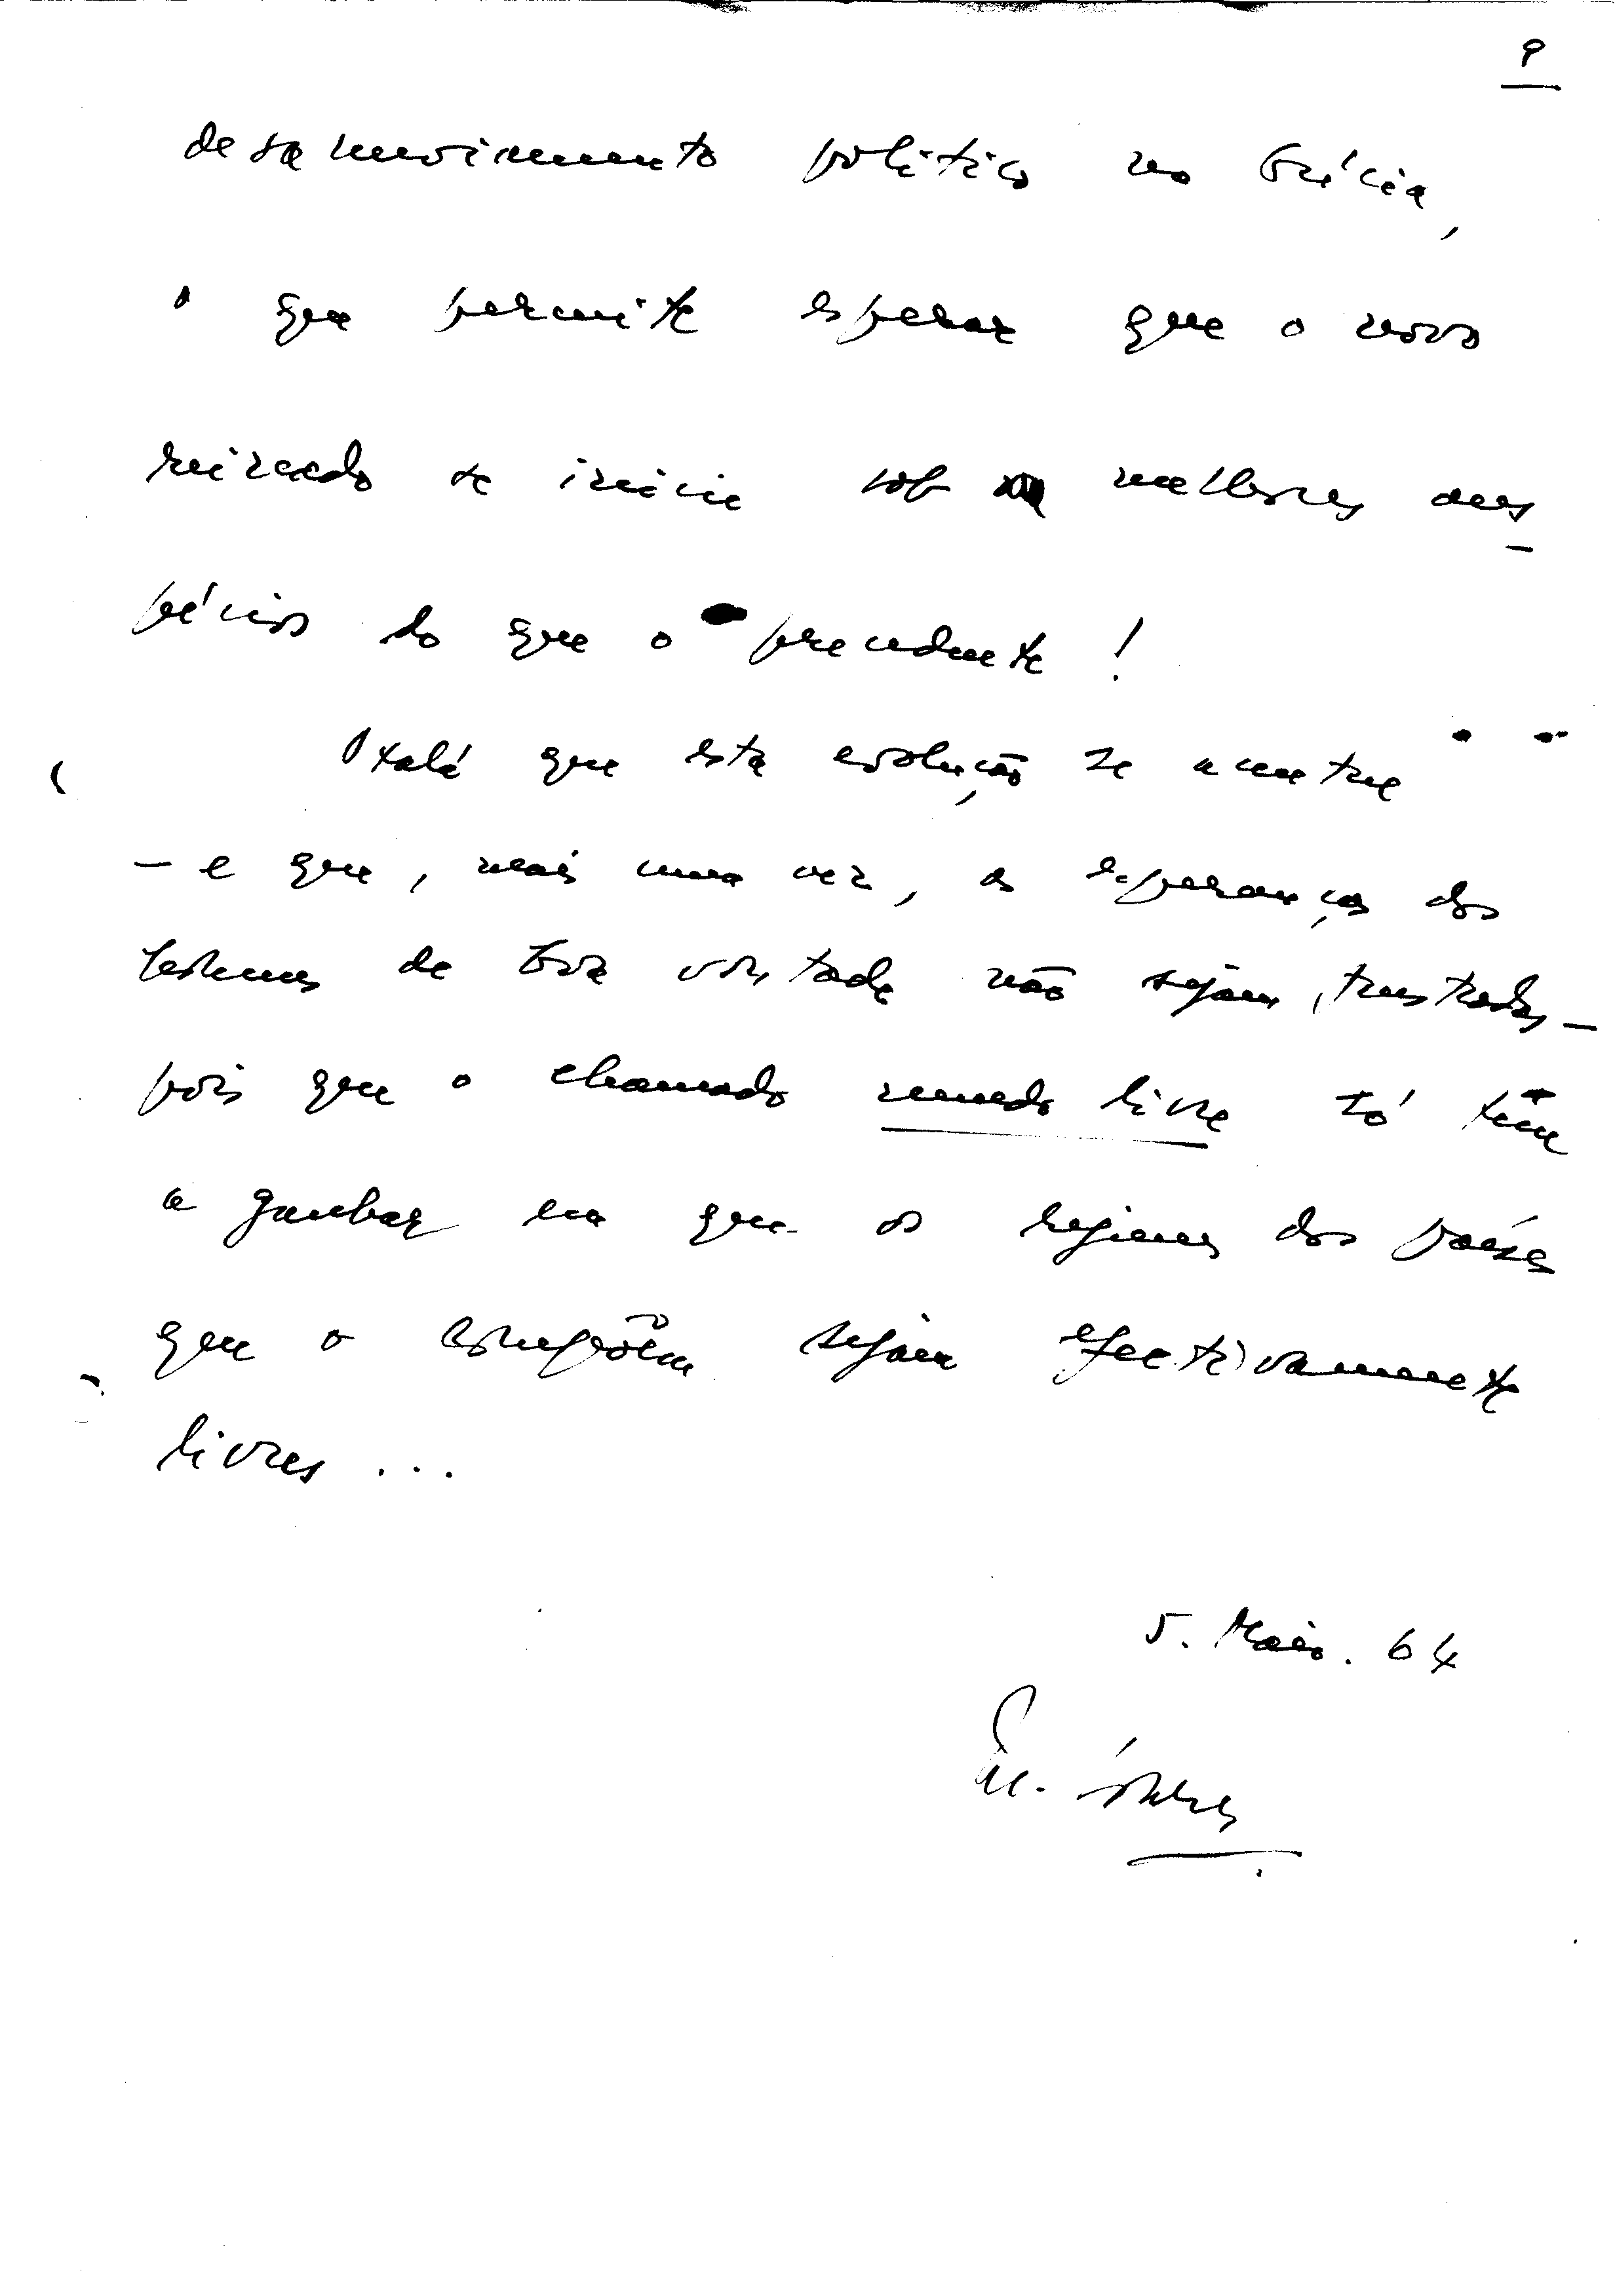 9
desanuviamento político na Grécia,
o que permite esperar que o novo
reinado se inicie sob melhores aus-
pícios do que o precedente!
Oxalá que esta evolução se acentue
— e que, mais uma vez, as esperanças dos
homens de boa vontade não sejam frustradas —
pois que o chamado mundo livre só tem
a ganhar em que os regimes dos países
que o compõem sejam efectivamente
livres ...
5. Maio. 64